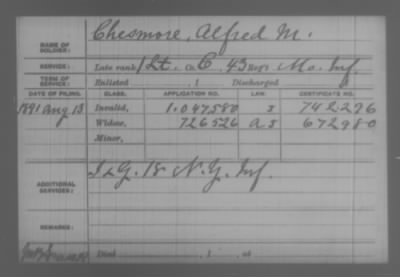 Chesmore, Alfred M.
NAME OF SOLDIER:
SERVICE: Late rank 1 Lt. Co. C, 43 Reg't Mo. Inf.
TERM OF SERVICE: Enlisted , 1 Discharged , 1
DATE OF FILING. CLASS. APPLICATION NO. LAW. CERTIFICATE NO.
1891 Aug 13 Invalid, 1.047580 742.296
Widow, 726526 672980
Minor,
ADDITIONAL SERVICES: I & G. 18 N.Y. Inf.
REMARKS:
Died , 1 , at